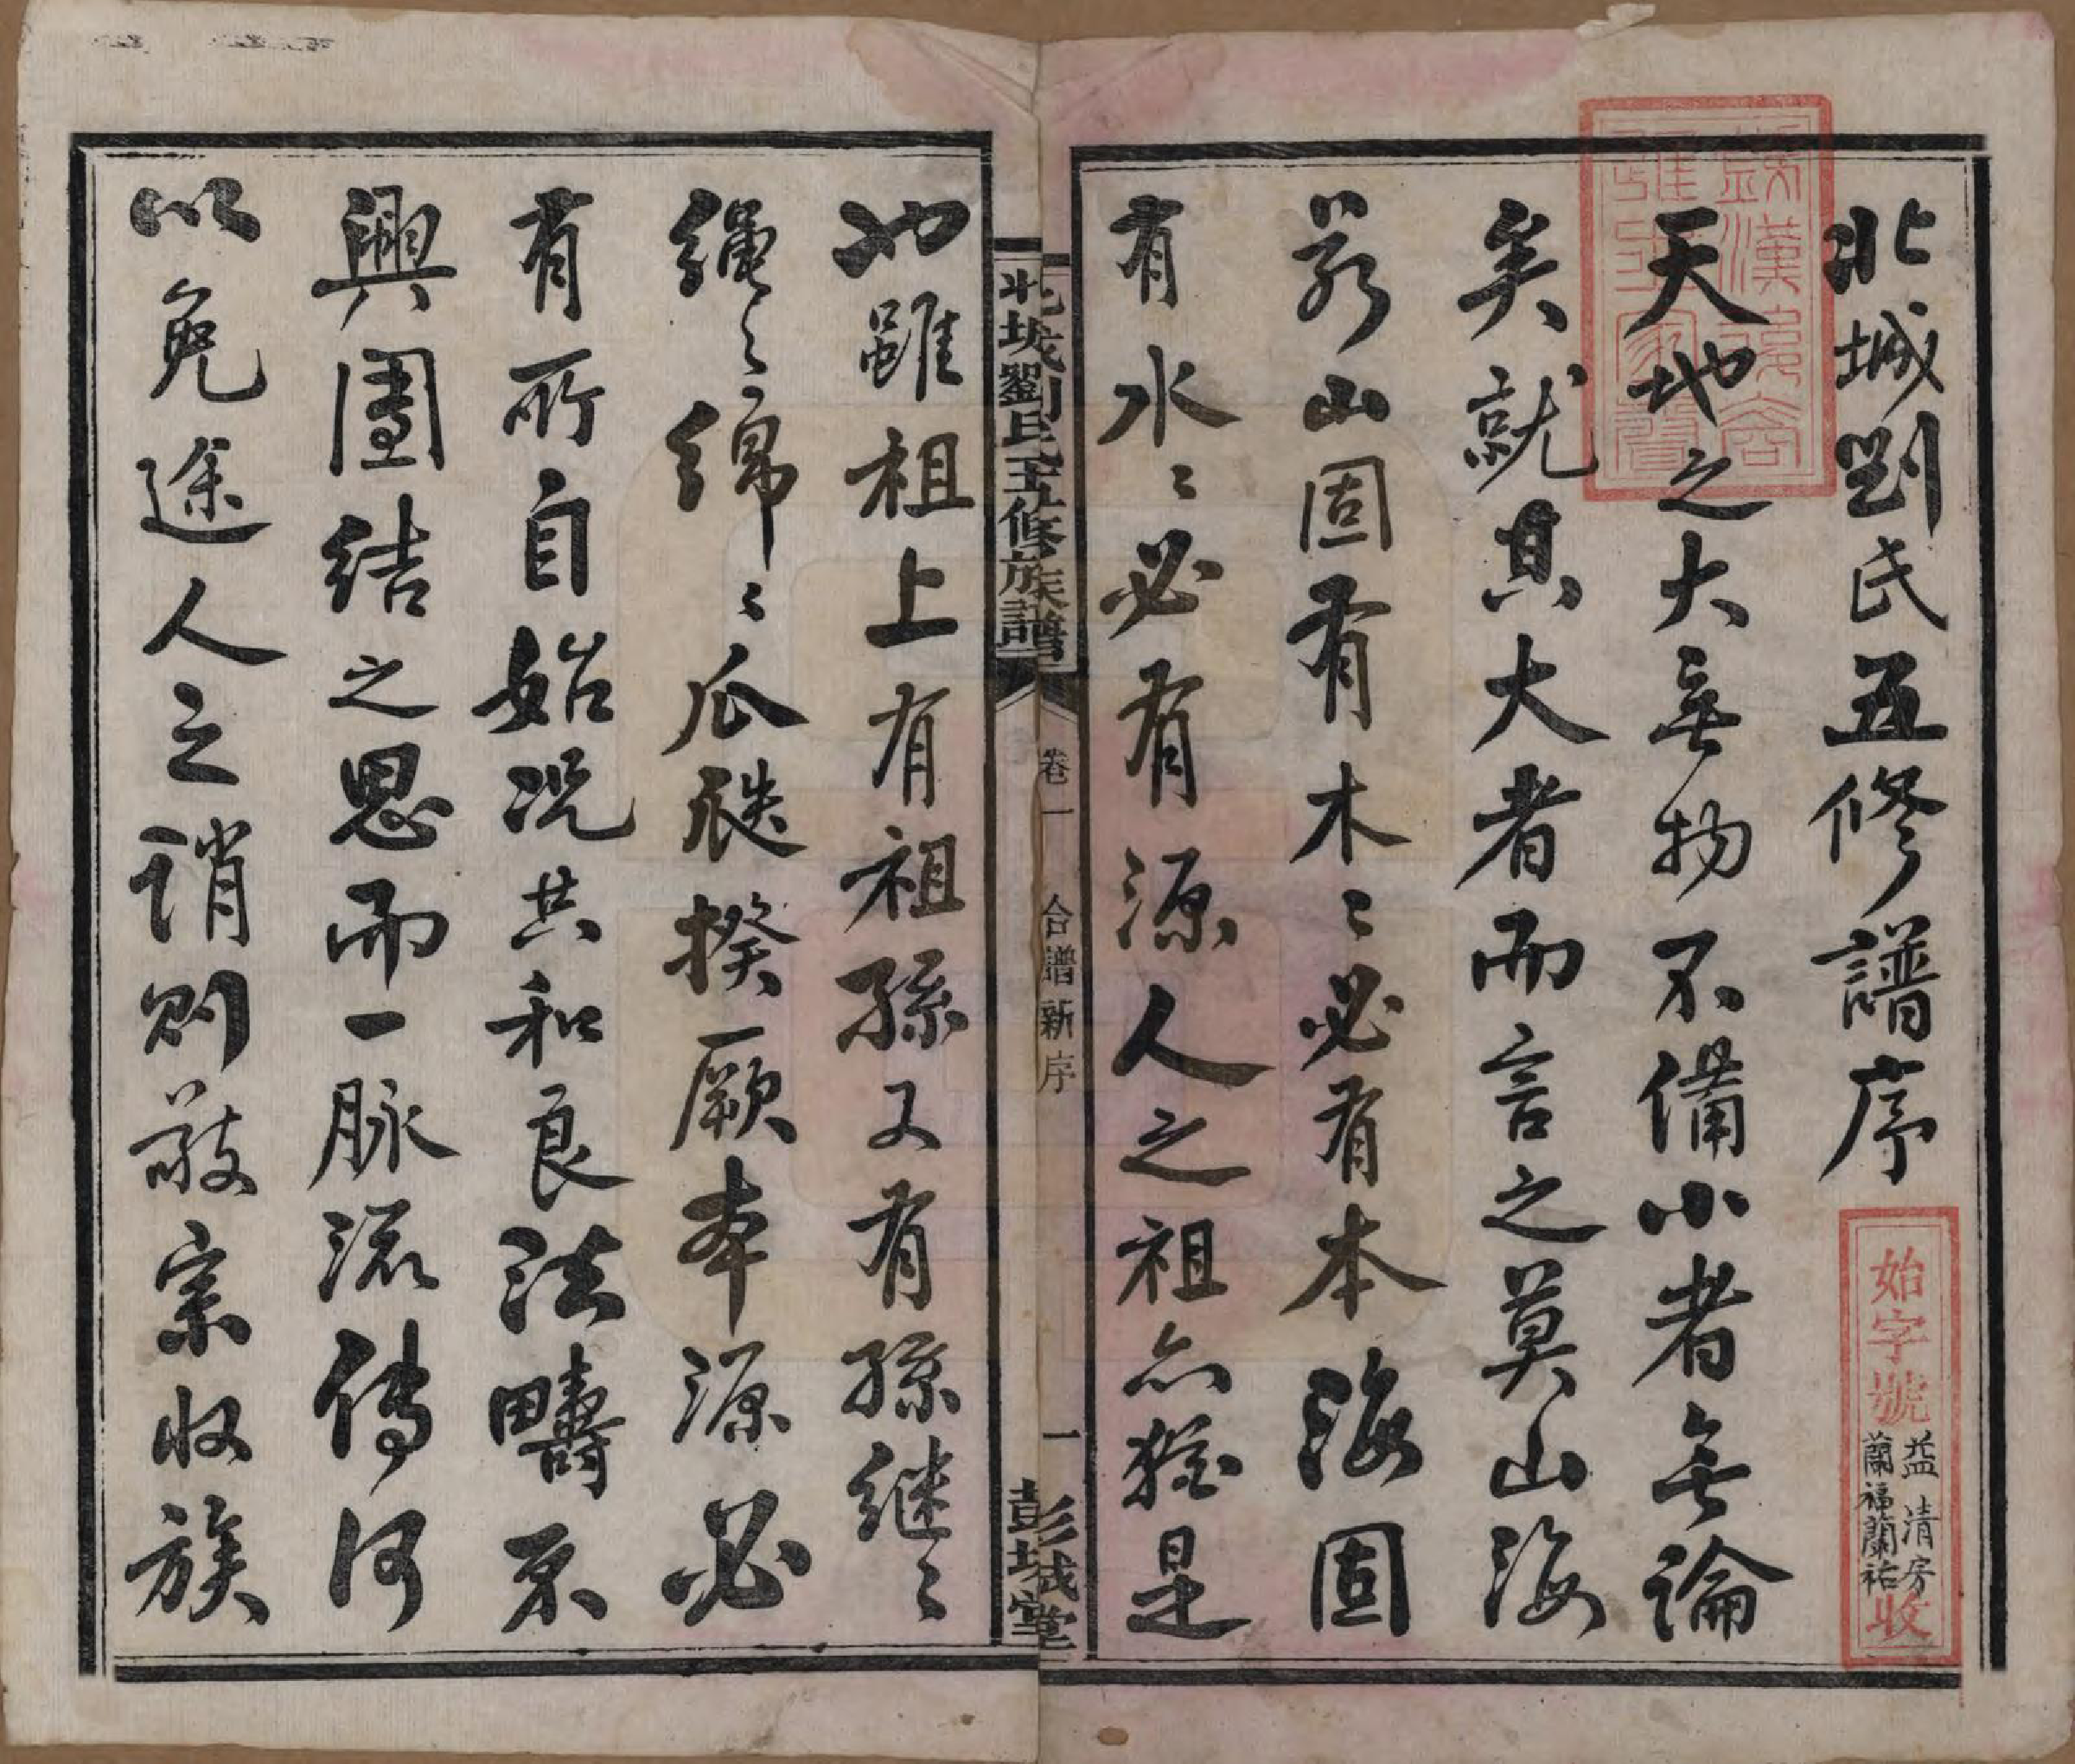 北城劉氏五修譜序
天地之大無物不備小者無論
矣就其大者而言之莫山海
若山固有木〻必有本海固
有水〻必有源人之祖亦猶是
也雖祖上有祖孫又有孫繼〻
繩〻綿〻瓜瓞揆厥本源必
有所自始況共和良法疇不
興團結之思而一脉流傳何
以免途人之誚則敬宗收族
北城劉氏五修族譜
卷一
合譜新序
一
彭城堂
始字號
益清房
蘭福蘭祐
收